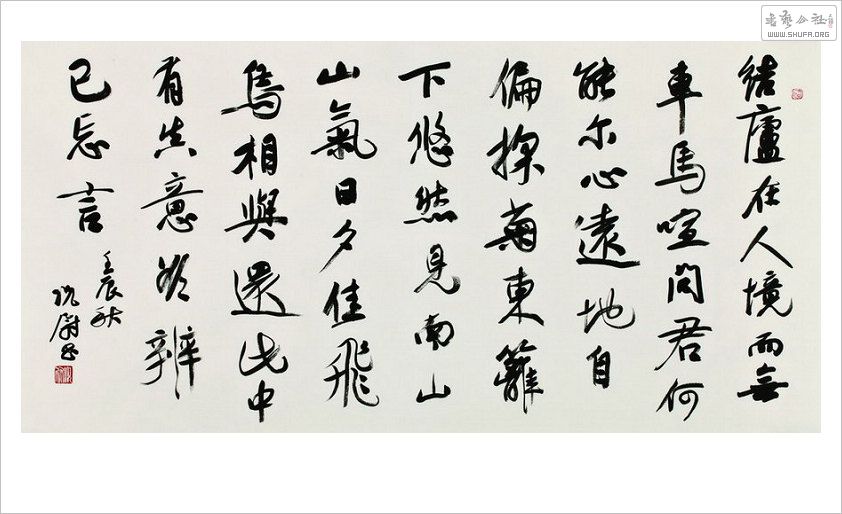 結廬在人境而無
車馬喧問君何
能尔心遠地自
偏採菊東籬
下悠然見南山
山氣日夕佳飛
鳥相與還此中
有真意欲辨
已忘言
壬辰秋
蔚书
书艺公社
WWW.SHUFA.ORG